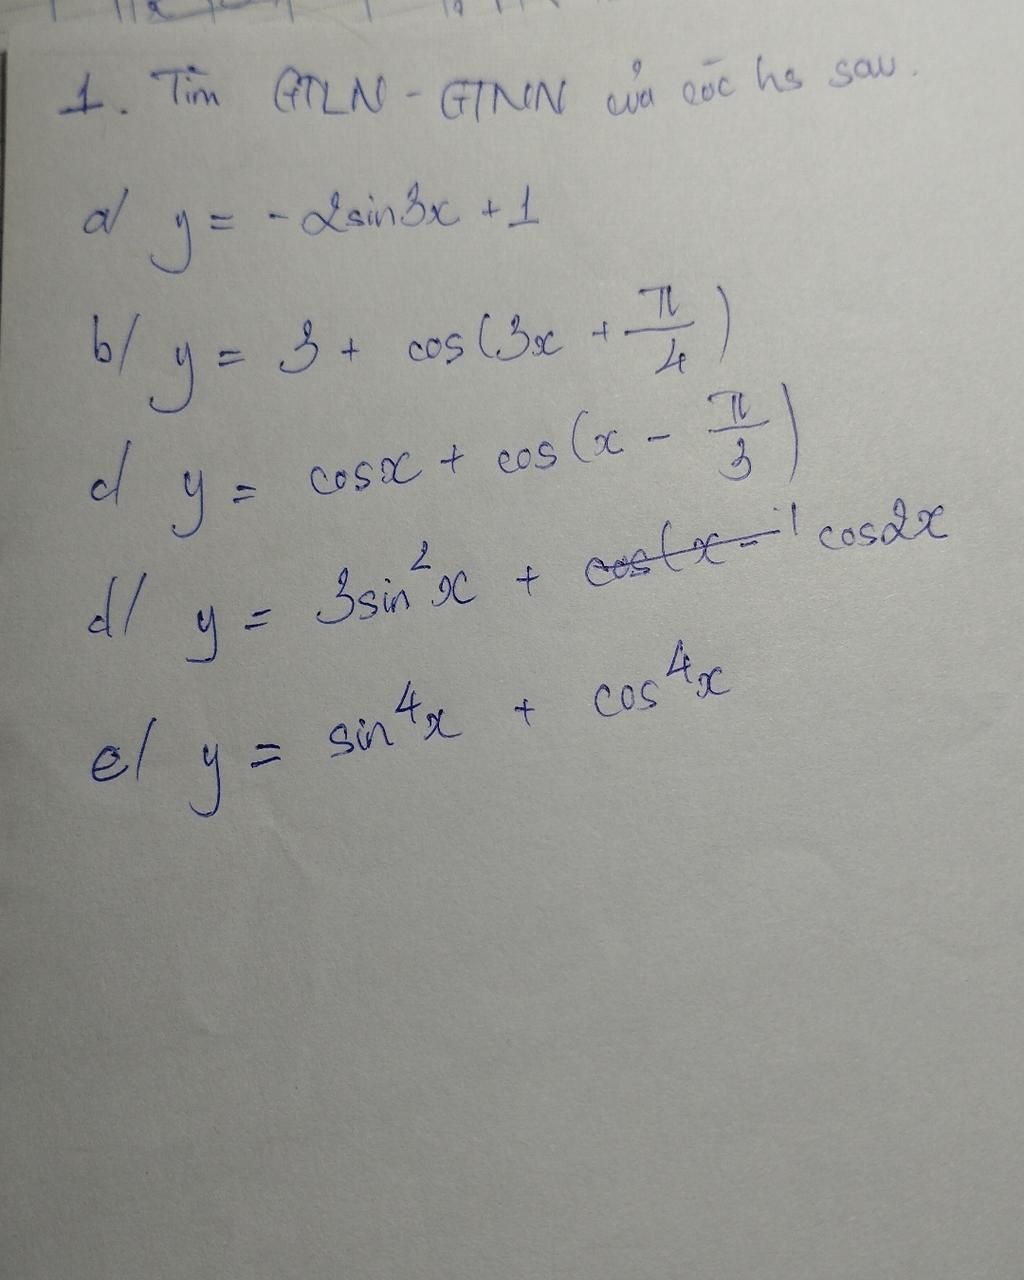 1. Tìm GTLN - GTNN của các hs sau.
a/ y = -2sin3x + 1
b/ y = 3 + cos(3x + π/4)
c/ y = cosx + cos(x - π/3)
d/ y = 3sin²x + cos2x
e/ y = sin⁴x + cos⁴x